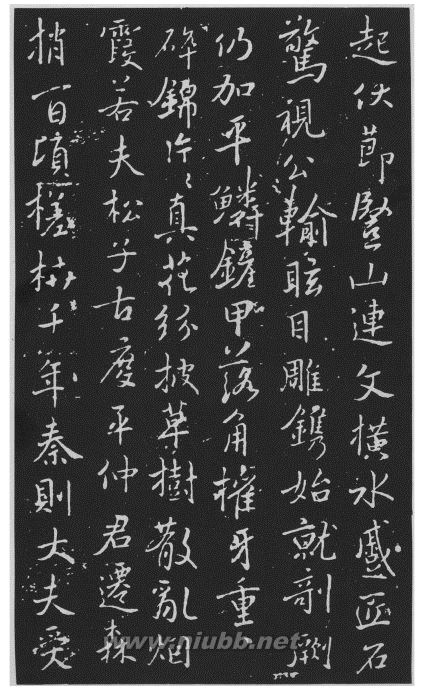 起伏節豎山連文橫水蹙匠石
驚視公輸眩目雕鐫始就剞劂
仍加平鱗鏟甲落角摧牙重〻
碎錦片〻真花紛披草樹散亂烟
霞若夫松子古度平仲君遷森
梢百頃槎枿千年秦則大夫受
www.niubb.net